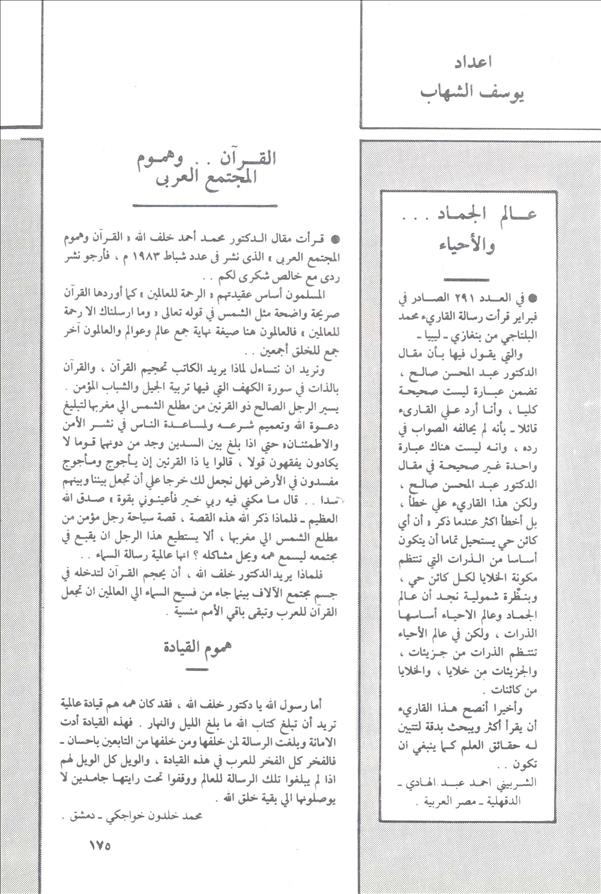 اعداد
يوسف الشهاب
عـالم الجمـاد ...
والأحياء
● في العـدد ٢٩١ الصـادر في
فبراير قرأت رسالة القاريء محمد
البلتاجي من بنغازي ـ ليبيا ـ
والتي يقول فيها بـأن مقـال
الدكتور عبد المحسن صالح ،
تضمن عبارة ليست صحيحـة
كليـا ، وأنـا أرد علي القـارىء
قائلا ـ بأنه لم يحالفه الصواب في
رده ، وانـه ليست هناك عبـارة
واحدة غير صحيحـة في مقـال
الدكتور عبد المحسن صالح ،
ولكن هذا القاريء علي خطأ ،
بل أخطأ اكثر عندما ذكر « أن أي
كائن حي يستحيل تماما أن يتكون
أساسا من الـذرات التي تنتظم
مكونة الخلايا لكـل كائن حي ،
وبنظرة شمولية نجـد أن عالـم
الجمـاد وعالم الاحيـاء أساسهـا
الذرات ، ولكن في عالم الأحياء
تنتظـم الذرات من جـزيئات ،
والجزيئات من خلايا ، والخلايا
من كائنات .
وأخيرا أنصح هذا القاريء
أن يقرأ أكثر ويبحث بدقة لتتبين
لـه حقـائق العلم كـما ينبغي ان
تكون ..
الشـربيني احمـد عبـد الهـادي ـ
الدقهلية ـ مصر العربية .
القـرآن .. وهمـوم
المجتمع العربى
● قـرأت مقال الـدكتور محمـد أحمد خلف الله « القـرآن وهموم
المجتمع العربى » الذى نشر فى عدد شباط ١٩٨٣ م ، فأرجو نشر
ردى مع خالص شكرى لكم ..
المسلمون أساس عقيدتهم « الرحمة للعالمين » كما أوردها القرآن
صريحة واضحة مثل الشمس في قوله تعالى « وما ارسلناك الا رحمة
للعالمين » فالعالمون هنا صيغة نهاية جمع عالم وعوالم والعالمون آخر
جمع للخلق أجمعين ..
ونريد ان نتساءل لماذا يريد الكاتب تحجيم القرآن ، والقرآن
بالذات في سورة الكهف التي فيها تربية الجيل والشباب المؤمن .
يسير الرجل الصالح ذو القرنين من مطلع الشمس الي مغربها لتبليغ
دعـوة الله وتعميم شـرعـه ولمسـاعدة الناس في نشـر الأمن
والاطمئنان« حتي اذا بلغ بين السدين وجد من دونهما قوما لا
يكادون يفقهون قولا ، قالوا يا ذا القرنين إن يـأجوج ومـأجوج
مفسدون في الأرض فهل نجعل لك خرجا علي أن تجعل بيننا وبينهم
سدا .. قال ما مكني فيه ربي خـير فأعينـوني بقوة » صدق الله
العظيم ـ فلماذا ذكر الله هذه القصة ، قصة سياحة رجل مؤمن من
مطلع الشمس الي مغربها ، ألا يستطيع هذا الرجل ان يقبع في
مجتمعه ليسمع همه ويحل مشاكله ؟ انها عالمية رسالة السماء ..
فلماذا يريد الدكتور خلف الله ، أن يحجم القرآن لتدخله في
جسم مجتمع الآلاف بينما جاء من فسيح السماء الي العالمين ان تجعل
القرآن للعرب وتبقى باقي الأمم منسية .
هموم القيادة
أما رسول الله يا دكتور خلف الله ، فقد كان همه هم قيادة عالمية
تريد أن تبلغ كتاب الله ما بلغ الليل والنهار . فهذه القيادة أدت
الامانة وبلغت الرسالة لمن خلفها ومن خلفها من التابعين باحسان ـ
فالفخر كل الفخر للعرب في هذه القيادة ، والويل كل الويل لهم
اذا لم يبلغوا تلك الرسالة للعالم ووقفوا تحت رايتها جامدين لا
يوصلونها الي بقية خلق الله .
محمد خلدون خواجكي ـ دمشق .
١٧٥